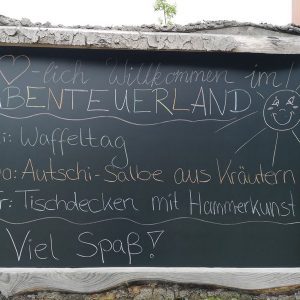 ♡-lich Willkommen im!
ABENTEUERLAND
i: Waffeltag
o: Autschi-Salbe aus Kräutern
r: Tischdecken mit Hammerkunst
Viel Spaß!